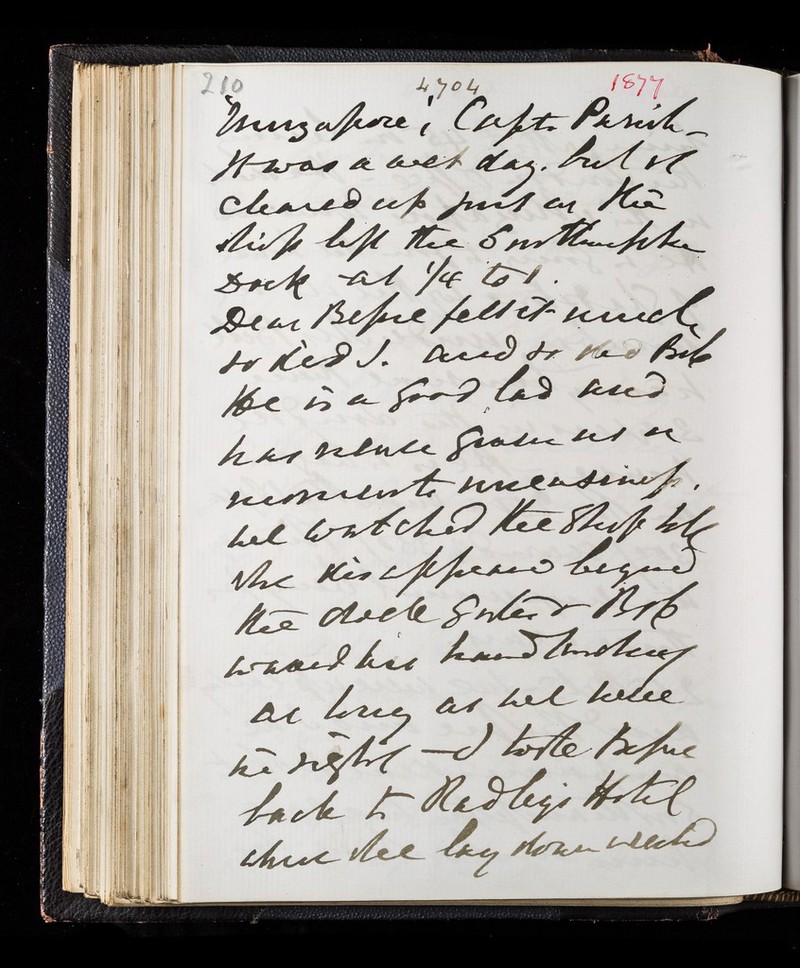 210 4704 1877
'Singapore', Capt. Parish -
It was a wet day. but it
cleared up just as the
ship left the Southampton
Dock at 1/4 to 1.
Dear Bessie felt it much
so did I. and so did Bob
He is a good lad and
has never given us a
moments uneasiness.
we watched the Ship till
she disappeared beyond
the dock gates & Bob
waved his handkerchief
as long as we were
in sight - I took Bessie
back to Radleys Hotel
where she lay down